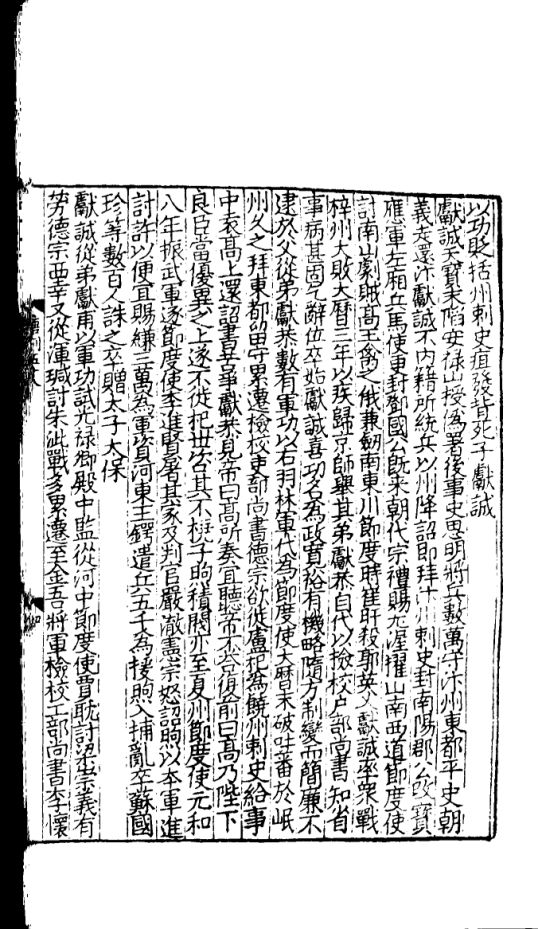 以功貶括州刺史疽發背死子獻誠
獻誠天寶末陷安祿山授偽署後事史思明將兵數萬守汴州東都平史朝
義走還汴獻誠不内籍所統兵以州降詔即拜汴州刺史封南陽郡公改寶
應軍左廂兵馬使更封鄧國公既来朝代宗禮賜尤渥擢山南西道節度使
討南山劇賊高玉禽之俄兼劒南東川節度時崔旰殺郭英乂獻誠率衆戰
梓州大敗大曆三年以疾歸京師舉其弟獻恭自代以檢校戶部尚書知省
事病甚固乞辭位卒始獻誠喜功名為政寛裕有機略隨方制變而簡廉不
逮於父從弟獻恭數有軍功以右羽林軍代為節度使大曆末破吐蕃於岷
州久之拜東都留守累遷檢校吏部尚書德宗欲徙盧杞為饒州刺史給事
中袁高上還詔書苦爭獻恭見帝曰高所奏宜聽帝不答復前曰高乃陛下
良臣當優異之上遂不從杞世咨其不橈子昫積閥亦至夏州節度使元和
八年振武軍逐節度使李進賢屠其家及判官嚴澈憲宗怒詔昫以本軍進
討許以便宜賜縑三萬為軍資河東王鍔遣兵五千為援昫入捕亂卒蘇國
珍等數百人誅之卒贈太子太保
獻誠從弟獻甫以軍功試光禄卿殿中監從河中節度使賈耽討梁崇義有
勞德宗西幸又從渾瑊討朱泚戰多累遷至金吾將軍檢校工部尚書李懷